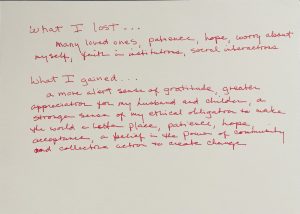 What I lost...
many loved ones, patience, hope, worry about
myself, faith in institutions, social interactions
What I gained...
a more alert sense of gratitude, greater
appreciation for my husband and children, a
stronger sense of my ethical obligation to make
the world a better place, patience, hope
acceptance, a belief in the power of community
and collective action to create change